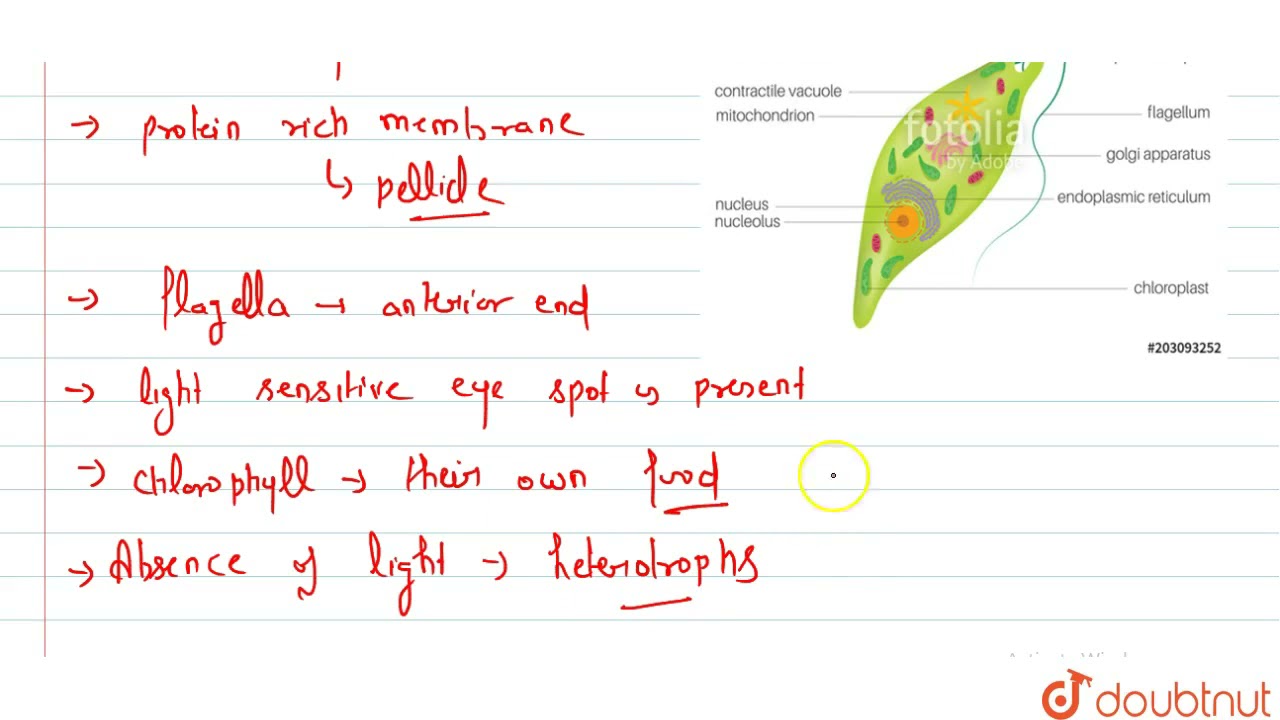 contractile vacuole
mitochondrion
flagellum
golgi apparatus
nucleus
nucleolus
endoplasmic reticulum
chloroplast
#203093252
fotolia
by Adobe
→ protein rich membrane
↳ pellicle
→ flagella → anterior end
→ light sensitive eye spot is present
→ chlorophyll → their own food
→ Absence of light → heterotrophs
doubtnut